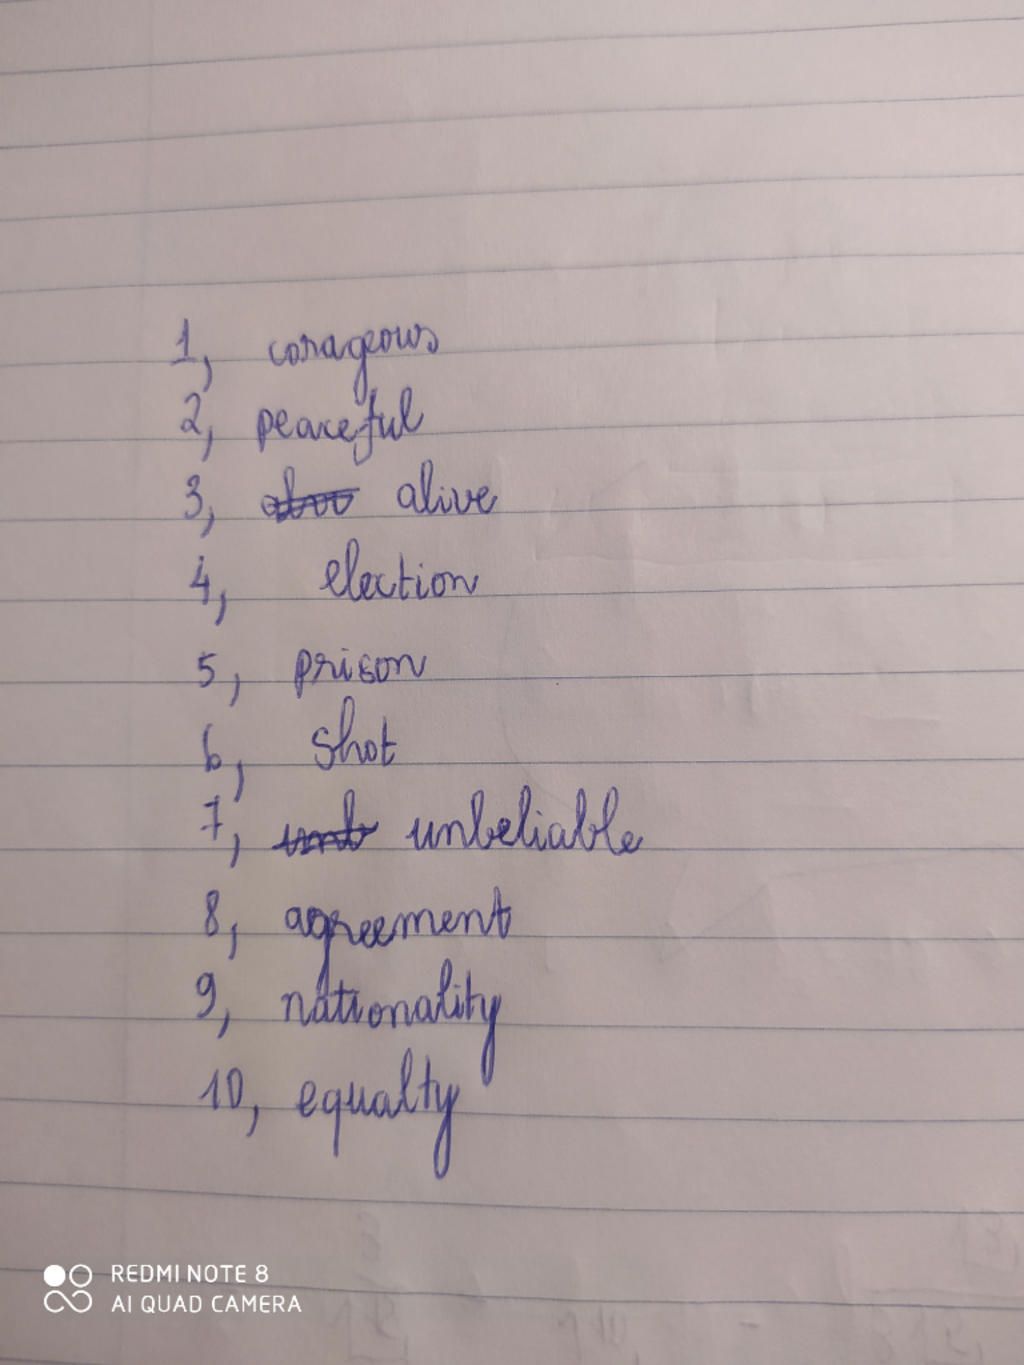 1, corageous
2, peaceful
3, alive
4, election
5, prison
6, shot
7, unbeliable
8, agreement
9, nationality
10, equalty
REDMI NOTE 8
AI QUAD CAMERA